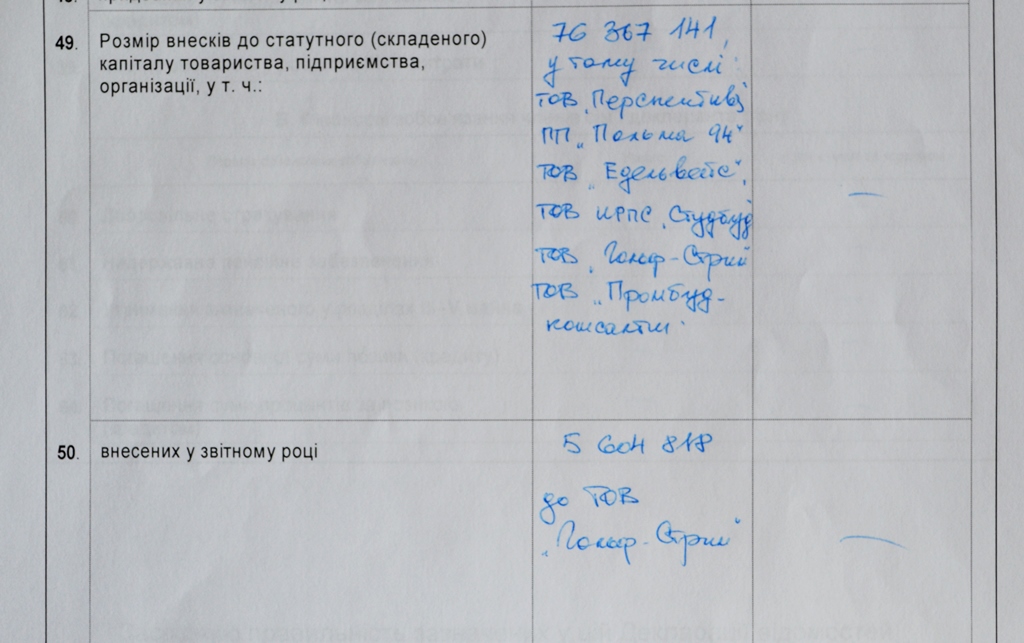 49. Розмір внесків до статутного (складеного)
капіталу товариства, підприємства,
організації, у т. ч.:
76 367 141,
у тому числі:
ТОВ „Перспектива"
ПП „Пальма 94"
ТОВ „Едельвейс",
ТОВ „Студбуд"
ТОВ „Гольф-Стрий"
ТОВ „Промбуд-
консалтин
50. внесених у звітному році
5 604 818
до ТОВ
„Гольф-Стрий"